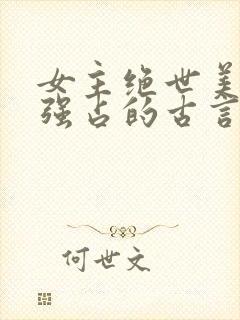 女主绝世美
强占的古言
何世文